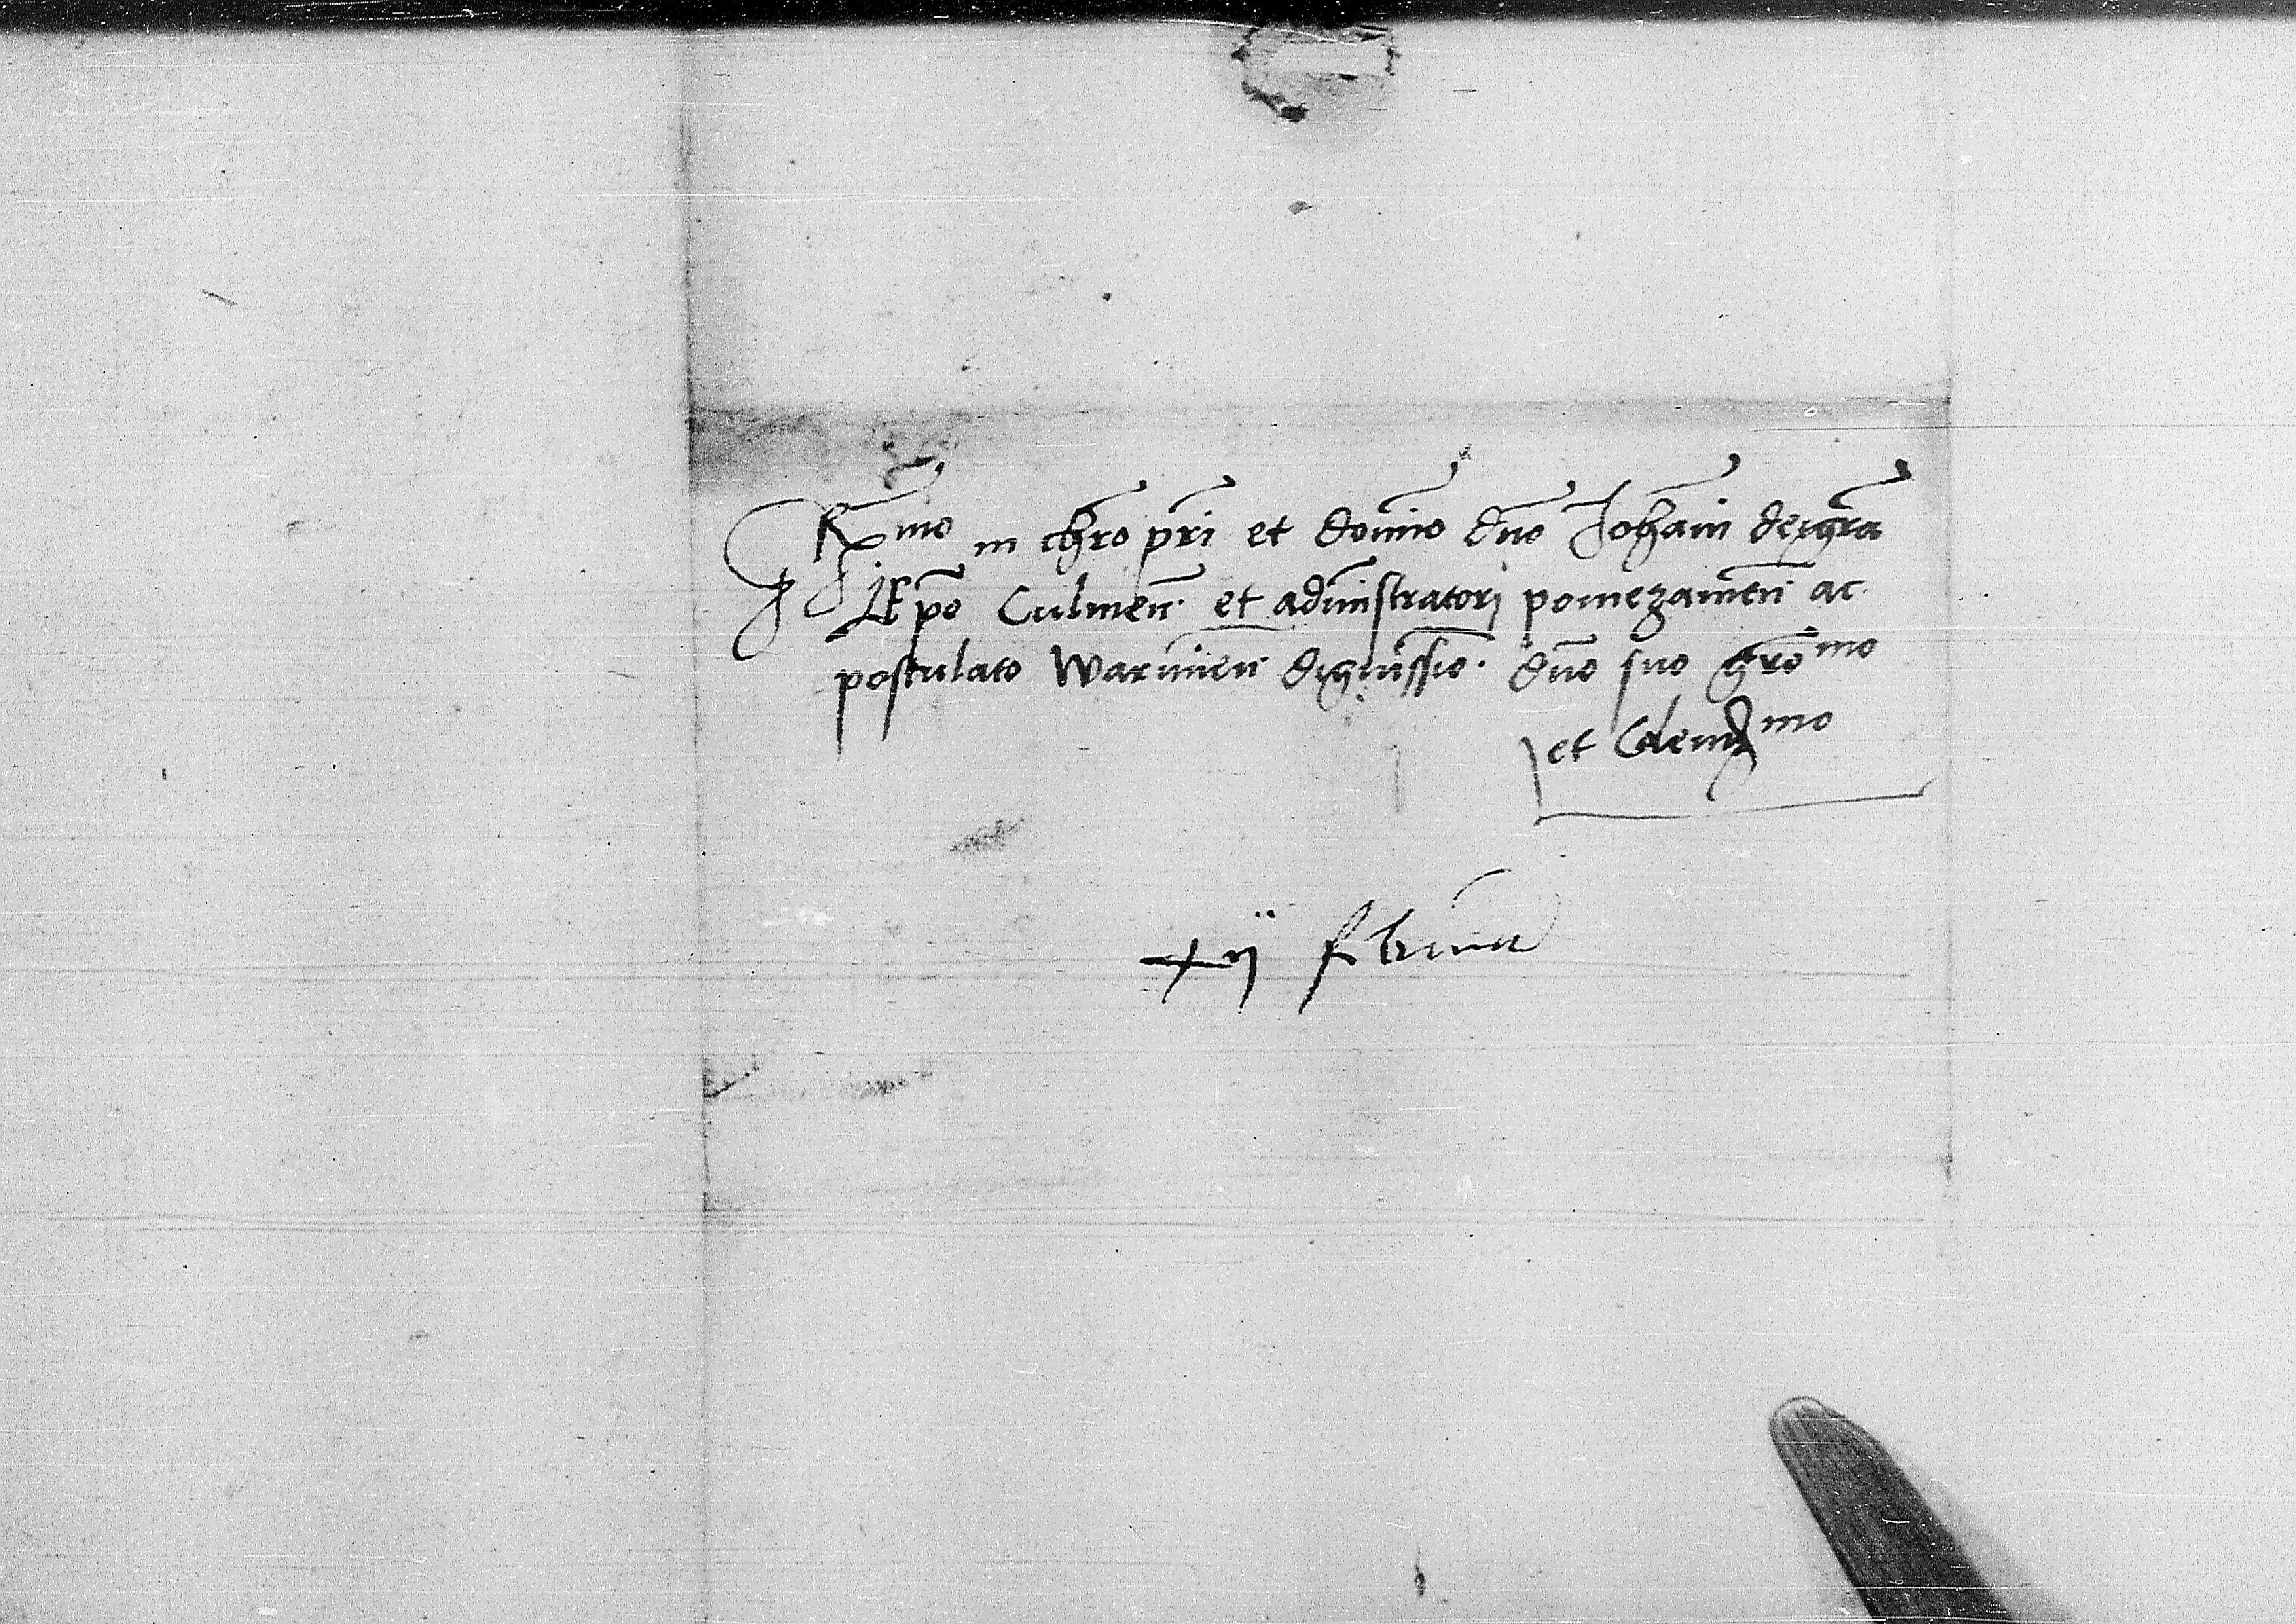 R mo in chro pri et domino dno Johanni dei gra
Epo Culmen. et administratori pomezanien ac
postulato Warmien dignissimo. dno suo gro mo
et Clemen mo
xij